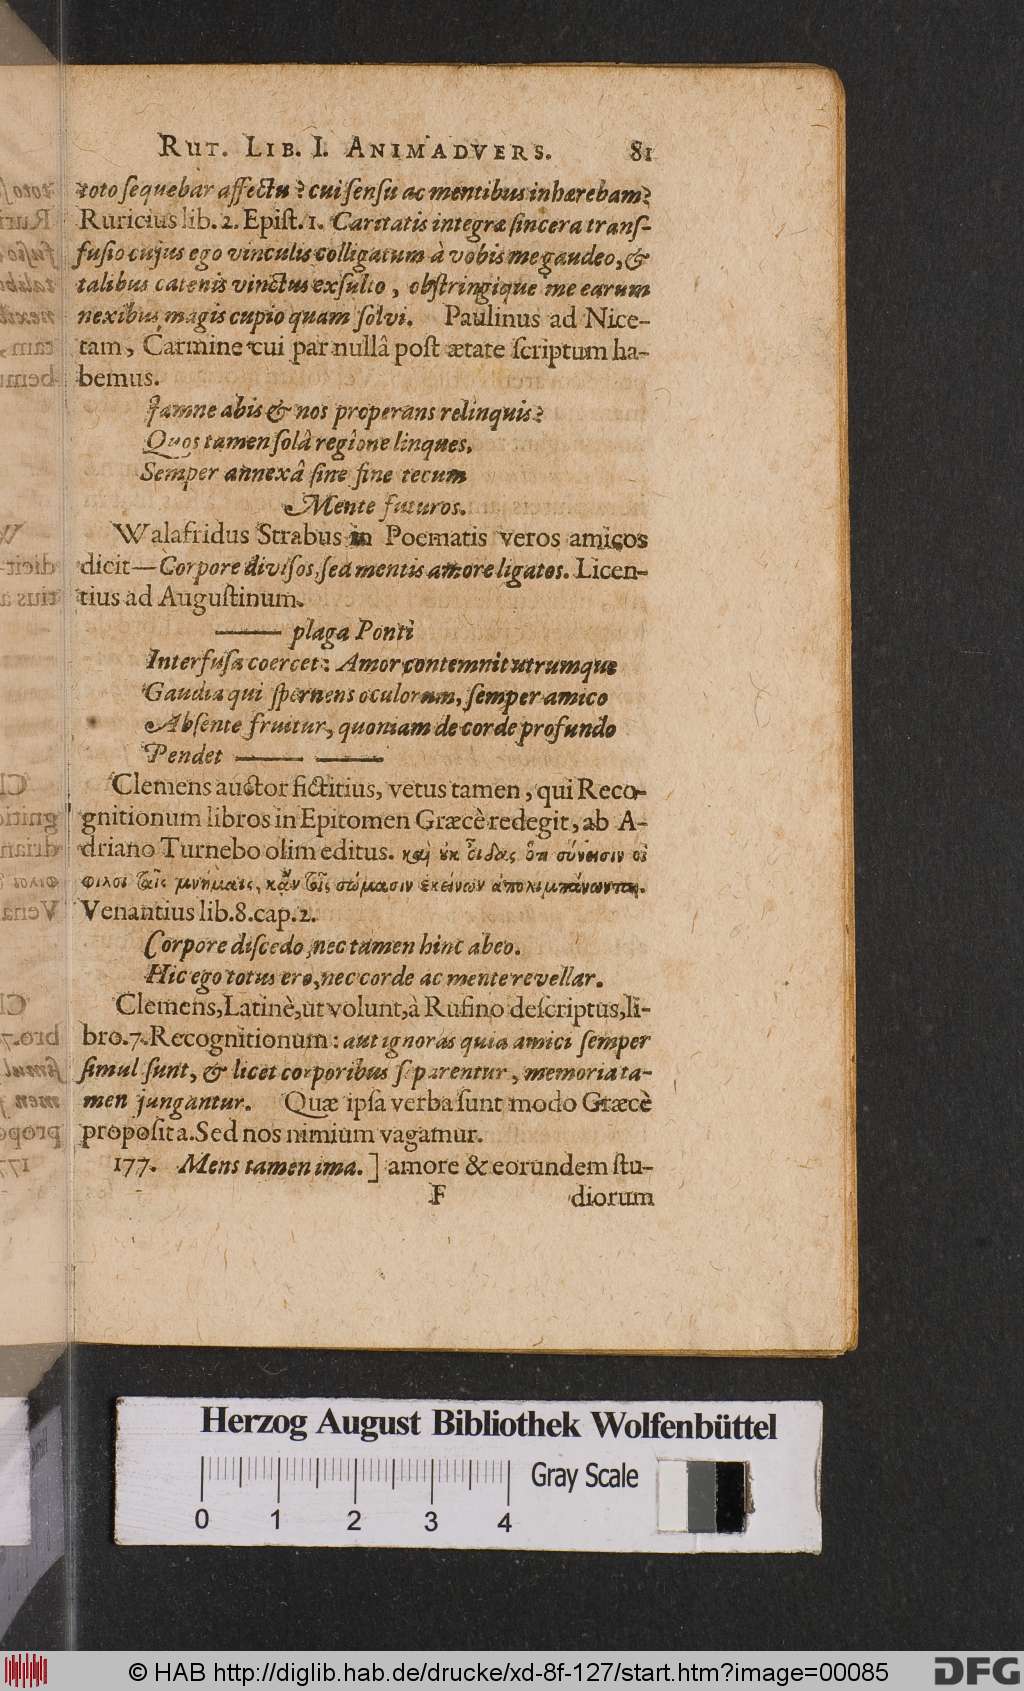 RUT. LIB. I. ANIMADVERS. 81
toto ſequebar affectu? cui ſenſu ac mentibus inhærebam?
Ruricius lib. 2. Epiſt. 1. Caritatis integræ ſincera transſ-
fuſio cujus ego vinculis colligatum à vobis me gaudeo, &
talibus catenis vinctus exſulto, obſtringique me earum
nexibus magis cupio quam ſolvi. Paulinus ad Nice-
tam, Carmine cui par nullâ poſt ætate ſcriptum ha-
bemus.
Jamne abis & nos properans relinquis?
Quos tamen ſolâ regione linques,
Semper annexâ ſine fine tecum
Mente futuros.
Walafridus Strabus in Poematis veros amicos
dicit—Corpore diviſos, ſed mentis amore ligatos. Licen-
tius ad Auguſtinum.
—— plaga Ponti
Interfuſa coercet: Amor contemnit utrumque
Gaudia qui ſpernens oculorum, ſemper amico
Abſente fruitur, quoniam de corde profundo
Pendet —— ——
Clemens auctor fictitius, vetus tamen, qui Reco-
gnitionum libros in Epitomen Græcè redegit, ab A-
driano Turnebo olim editus. καὶ οὐκ οἶδας ὅτι σύνεισιν οἱ
φίλοι ταῖς μνήμαις, κἂν τοῖς σώμασιν ἐκείνων ἀπολιμπάνωνται.
Venantius lib. 8. cap. 2.
Corpore diſcedo, nec tamen hinc abeo.
Hic ego totus ero, nec corde ac mente revellar.
Clemens, Latinè, ut volunt, à Rufino deſcriptus, li-
bro. 7. Recognitionum: aut ignoras quia amici ſemper
ſimul ſunt, & licet corporibus ſeparentur, memoria ta-
men jungantur. Quæ ipſa verba ſunt modo Græcè
propoſita. Sed nos nimium vagamur.
177. Mens tamen ima.] amore & eorundem ſtu-
F diorum
Herzog August Bibliothek Wolfenbüttel
Gray Scale
0 1 2 3 4
© HAB http://diglib.hab.de/drucke/xd-8f-127/start.htm?image=00085 DFG